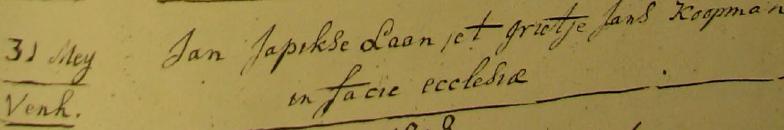 31 Mey Jan Japikse Laan, et Grietje Jans Koopman
Venh. in facie ecclesiæ